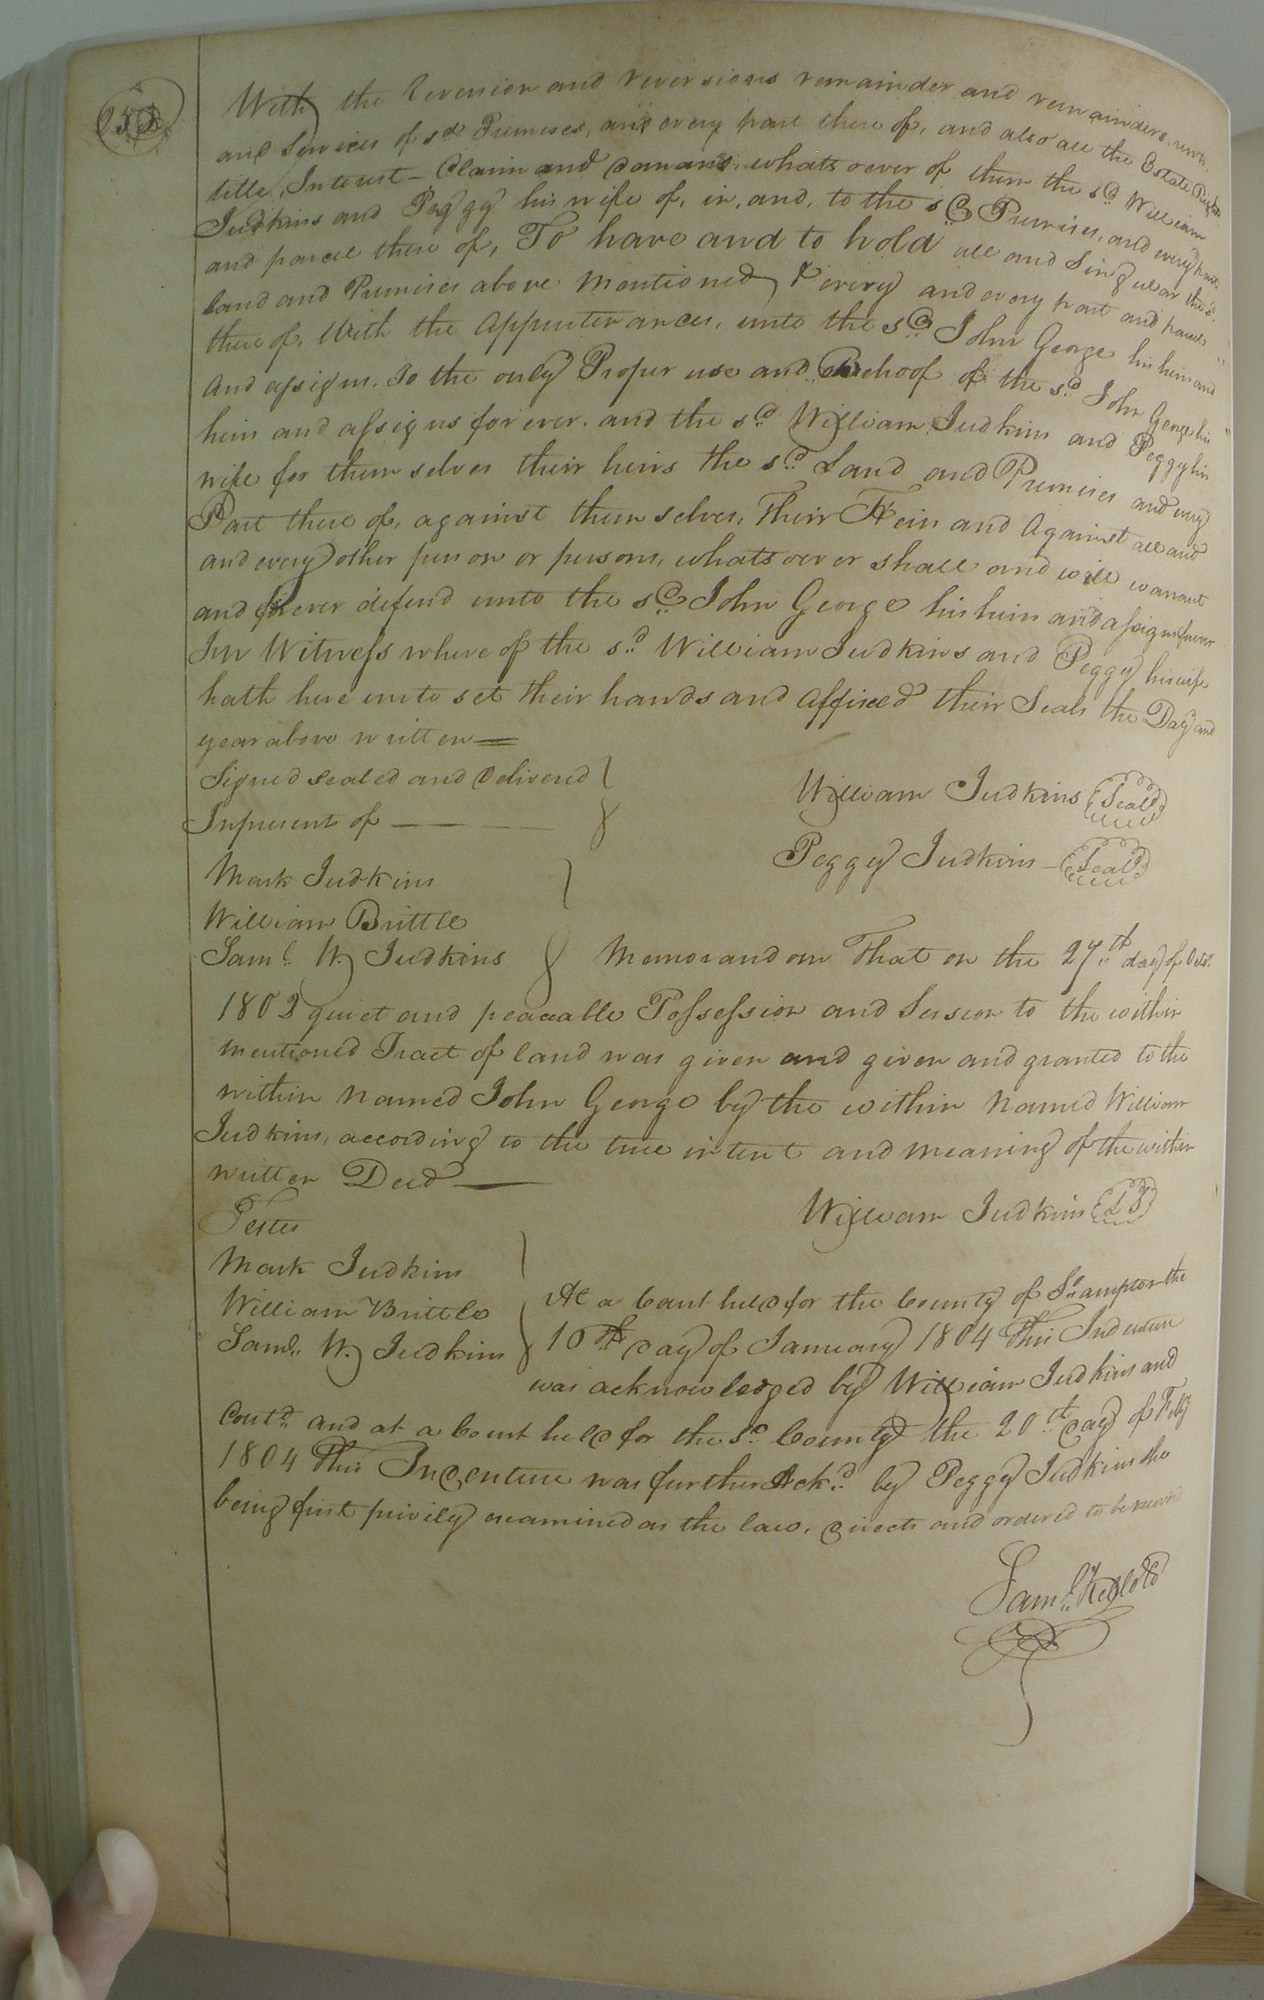 With the Revenion and reversions remainder and remainders, rents
and Services of sd Premises, and every part there of, and also all the Estate Right
title, Interest - Claim and Demand, whatsoever of them the sd William
Judkins and Peggy his wife of, in, and, to the sd Premises, and every part
and parcel there of, To have and to hold all and Singular the sd.
land and Premises above Mentioned, & every and every part and parcel
there of, With the Appurtenances, unto the sd John George his heirs and
and assigns. To the only Proper use and Behoof of the sd John George his
heirs and assigns for ever. and the sd William Judkins and Peggy his
wife for them selves their heirs the sd Land and Premises and every
Part there of, against them selves, Their Heirs and Against all and
and every other person or persons, whatsoever shall and will warrant
and forever defend unto the sd John George his heirs and assigns forever
In Witness where of the sd William Judkins and Peggy his wife
hath here unto set their hands and affixed their Seals the Day and
year above written
Signed sealed and Delivered
In present of
William Judkins Seal
Peggy Judkins Seal
Mark Judkins
William Brittle
Saml. W. Judkins
Memorandom That on the 27th day of Octo.
1803 quiet and peacable Possession and Seision to the within
mentioned Tract of land was given and given and granted to the
within Named John George by the within Named William
Judkins, according to the true intent and meaning of the within
written Deed
William Judkins LS
Testes
Mark Judkins
William Brittle
Saml. W. Judkins
At a Court held for the County of So.ampton the
10th day of January 1804 This Indenture
was acknowledged by William Judkins and
Contd and at a Court held for the sd County the 20th day of Feby
1804 This Indenture was further Ackd by Peggy Judkins she
being first privily examined as the law, directs and ordered to be recorded